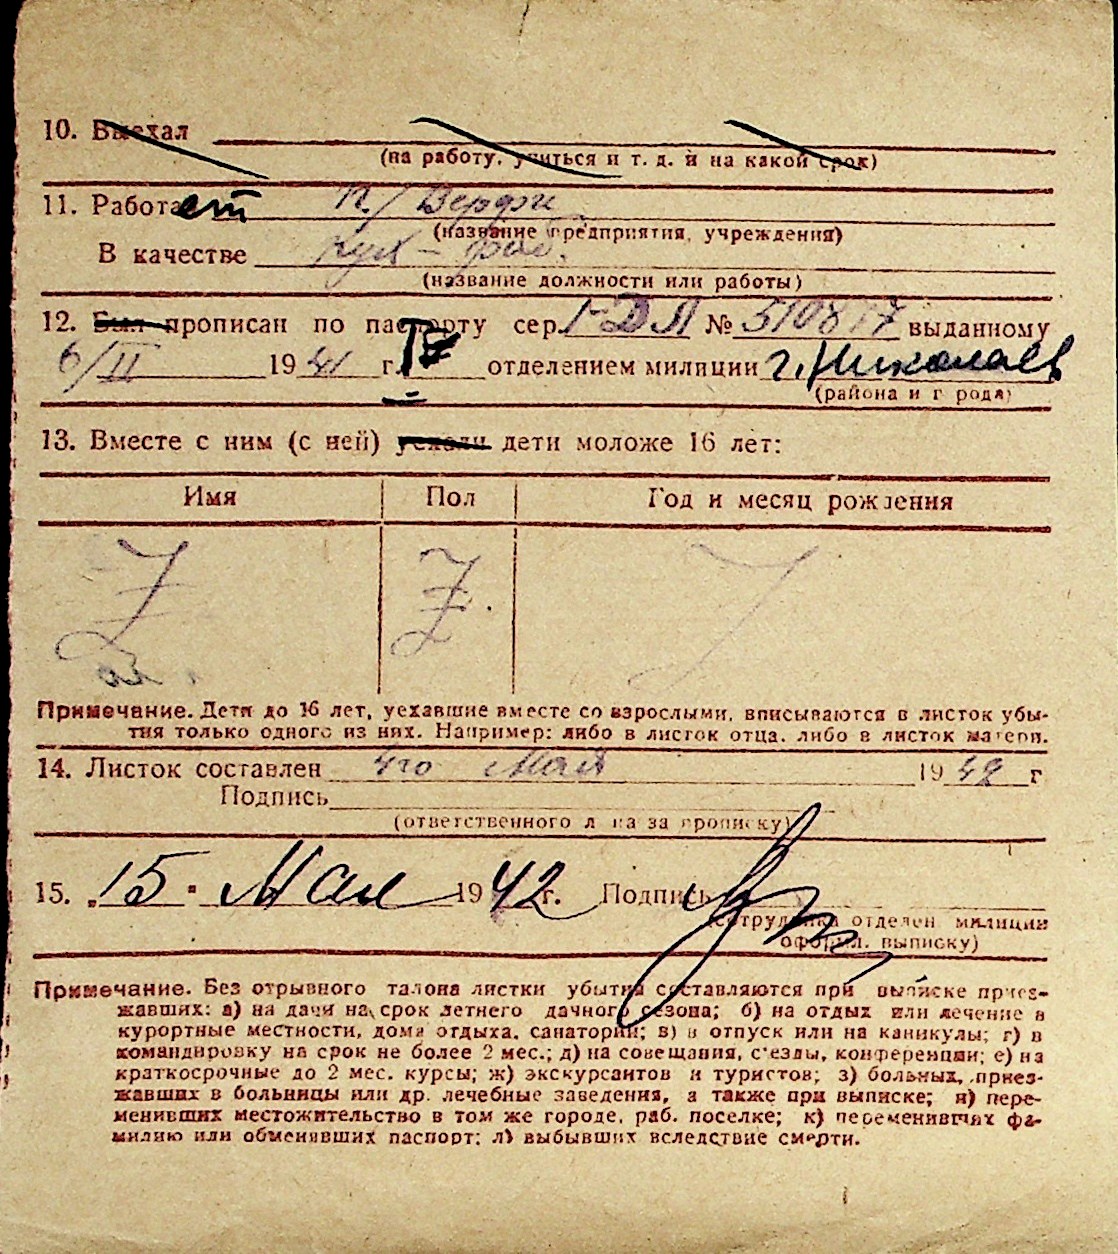 10. Выехал
(на работу, учиться и т. д. и на какой срок)
11. Работает п/ Верфи
(название предприятия, учреждения)
В качестве
(название должности или работы)
12. Был прописан по паспорту сер. I-ДЛ № 510817 выданному
6/II 1941 г. IV отделением милиции г. Николаев
(района и г рода)
13. Вместе с ним (с ней) уехали дети моложе 16 лет:
Имя Пол Год и месяц рождения
Z Z
Примечание. Дети до 16 лет, уехавшие вместе со взрослыми, вписываются в листок убы-
тия только одного из них. Например: либо в листок отца, либо в листок матери.
14. Листок составлен 4го Мая 1942 г
Подпись
(ответственного л ца за прописку)
15. „15" Мая 1942 г. Подпись
(сотрудника отделен милиции
оформ. выписку)
Примечание. Без отрывного талона листки убытия составляются при выписке приез-
жавших: а) на дачи на срок летнего дачного сезона; б) на отдых или лечение в
курортные местности, дома отдыха, санатории; в) в отпуск или на каникулы; г) в
командировку на срок не более 2 мес.; д) на совещания, с'езды, конференции; е) на
краткосрочные до 2 мес. курсы; ж) экскурсантов и туристов; з) больных, приез-
жавших в больницы или др. лечебные заведения, а также при выписке; и) пере-
менивших местожительство в том же городе, раб. поселке; к) переменивших фа-
милию или обменявших паспорт; л) выбывших вследствие смерти.